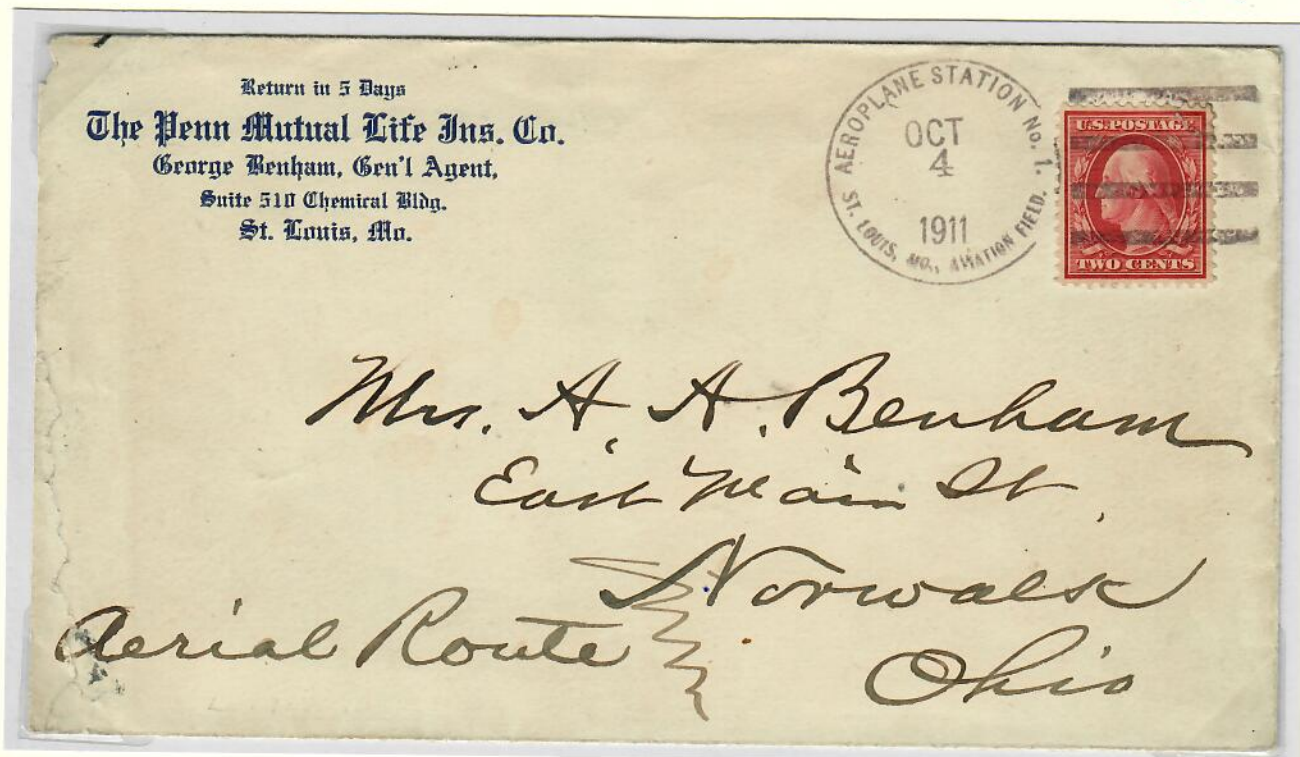 Return in 5 Days
The Penn Mutual Life Ins. Co.
George Benham, Gen'l Agent,
Suite 510 Chemical Bldg.
St. Louis, Mo.
AEROPLANE STATION No. 1.
OCT
4
1911
ST. LOUIS, MO., AVIATION FIELD.
U.S. POSTAGE
TWO CENTS
Mrs. A. A. Benham
East Main St.
Norwalk
Ohio
Aerial Route